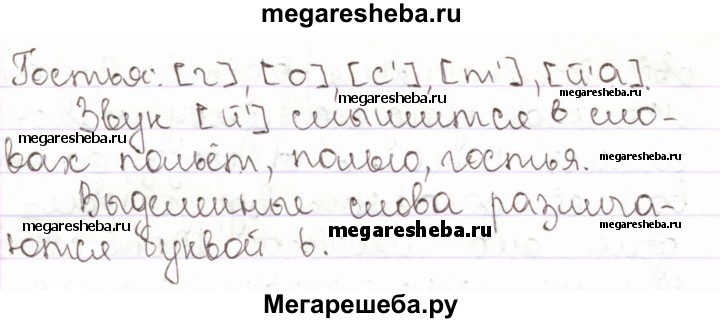 megaresheba.ru
Гостья: [г], [о], [с'], [т'], [й'а].
megaresheba.ru
megaresheba.ru
Звук [й'] слышится в сло-
megaresheba.ru
вах польёт, полью, гостья.
megaresheba.ru
Выделенные слова различа-
megaresheba.ru
megaresheba.ru
ются буквой ь.
megaresheba.ru
Мегарешеба.ру